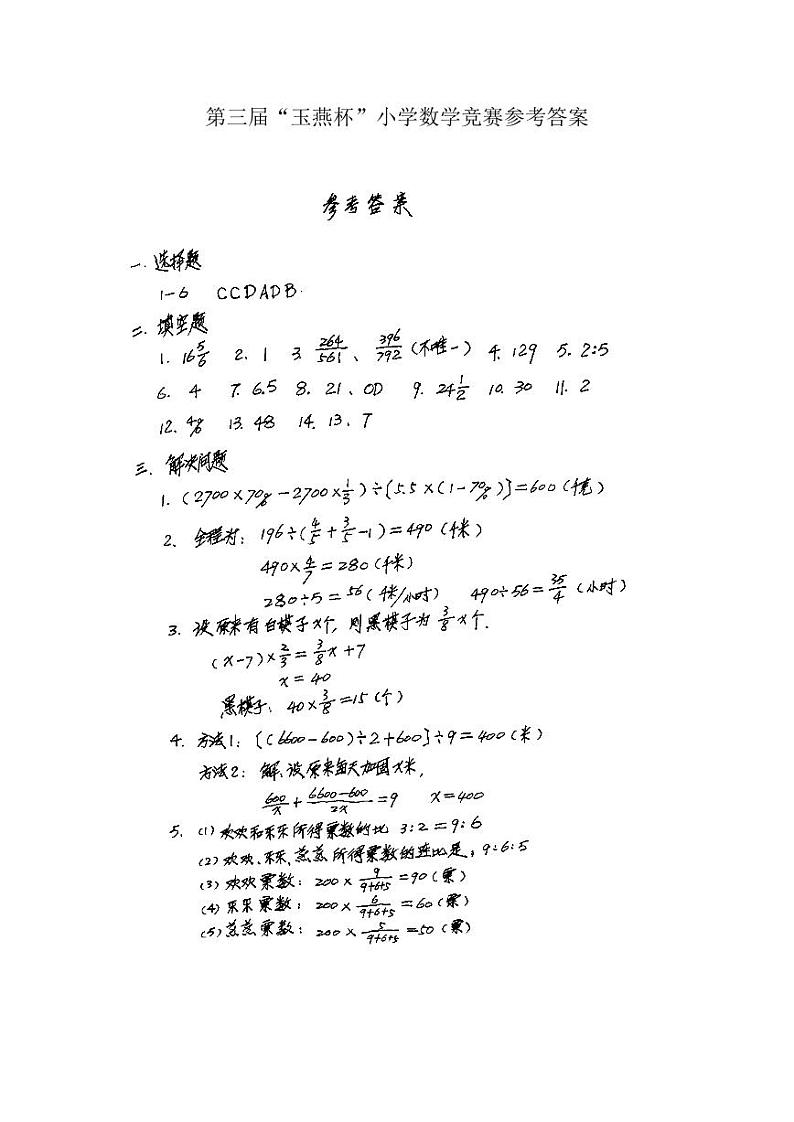 第三届“玉燕杯”小学数学竞赛参考答案
参考答案
一. 选择题
1-6 CCDADB.
二. 填空题
1. 16 5/6 2. 1 3. 264/561、396/792 (不唯一) 4. 129 5. 2:5
6. 4 7. 6.5 8. 21、OD 9. 24 1/2 10. 30 11. 2
12. 4% 13. 48 14. 13、7
三. 解决问题
1. (2700×70%-2700×1/3)÷[5.5×(1-70%)]=600(千克)
2. 全程为: 196÷(4/5+3/5-1)=490(千米)
490×4/7=280(千米)
280÷5=56(千米/小时) 490÷56=35/4(小时)
3. 设原来有白棋子x个, 则黑棋子为3/8x个.
(x-7)×2/3=3/8x+7
x=40
黑棋子: 40×3/8=15(个)
4. 方法1: [(6600-600)÷2+600]÷9=400(米)
方法2: 解、设原来每天加固x米,
600/x+6600-600/2x=9 x=400
5. (1) 欢欢和乐乐所得票数的比 3:2=9:6
(2) 欢欢、乐乐、所得票数的连比是, 9:6:5
(3) 欢欢票数: 200×9/9+6+5=90(票)
(4) 乐乐票数: 200×6/9+6+5=60(票)
(5) 票数: 200×5/9+6+5=50(票)